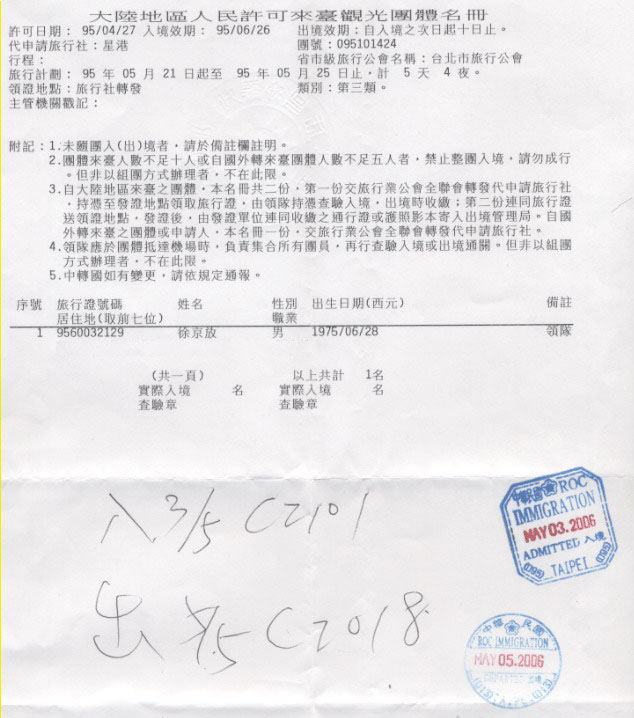 大陸地區人民許可來臺觀光團體名冊
許可日期: 95/04/27 入境效期: 95/06/26 出境效期:自入境之次日起十日止。
代申請旅行社:星港 團號:095101424
行程: 省市級旅行公會名稱:台北市旅行公會
旅行計劃: 95 年 05 月 21 日起至 95 年 05 月 25 日止,計 5 天 4 夜。
領證地點:旅行社轉發 類別:第三類。
主管機關戳記:
附記:1.未隨團入(出)境者,請於備註欄註明。
2.團體來臺人數不足十人或自國外轉來臺團體人數不足五人者,禁止整團入境,請勿成行
。但非以組團方式辦理者,不在此限。
3.自大陸地區來臺之團體,本名冊共二份,第一份交旅行業公會全聯會轉發代申請旅行社
,持憑至發證地點領取旅行證,由領隊持憑查驗入境,出境時收繳;第二份連同旅行證
送領證地點,發證後,由發證單位連同收繳之通行證或護照影本寄入出境管理局。自國
外轉來臺之團體或申請人,本名冊一份,交旅行業公會全聯會轉發代申請旅行社。
4.領隊應於團體抵達機場時,負責集合所有團員,再行查驗入境或出境通關。但非以組團
方式辦理者,不在此限。
5.中轉國如有變更,請依規定通報。
序號 旅行證號碼 姓名 性別 出生日期(西元) 備註
居住地(取前七位) 職業
1 9560032129 徐京放 男 1975/06/28 領隊
(共一頁) 以上共計 1名
實際入境 名 實際入境 名
查驗章 查驗章
入 3/5 CZ101
出 5/5 CZ018
中華民國 ROC
IMMIGRATION
MAY 03.2006
ADMITTED 入境
(095) TAIPEI (095)
中華民國
ROC IMMIGRATION
MAY 05.2006